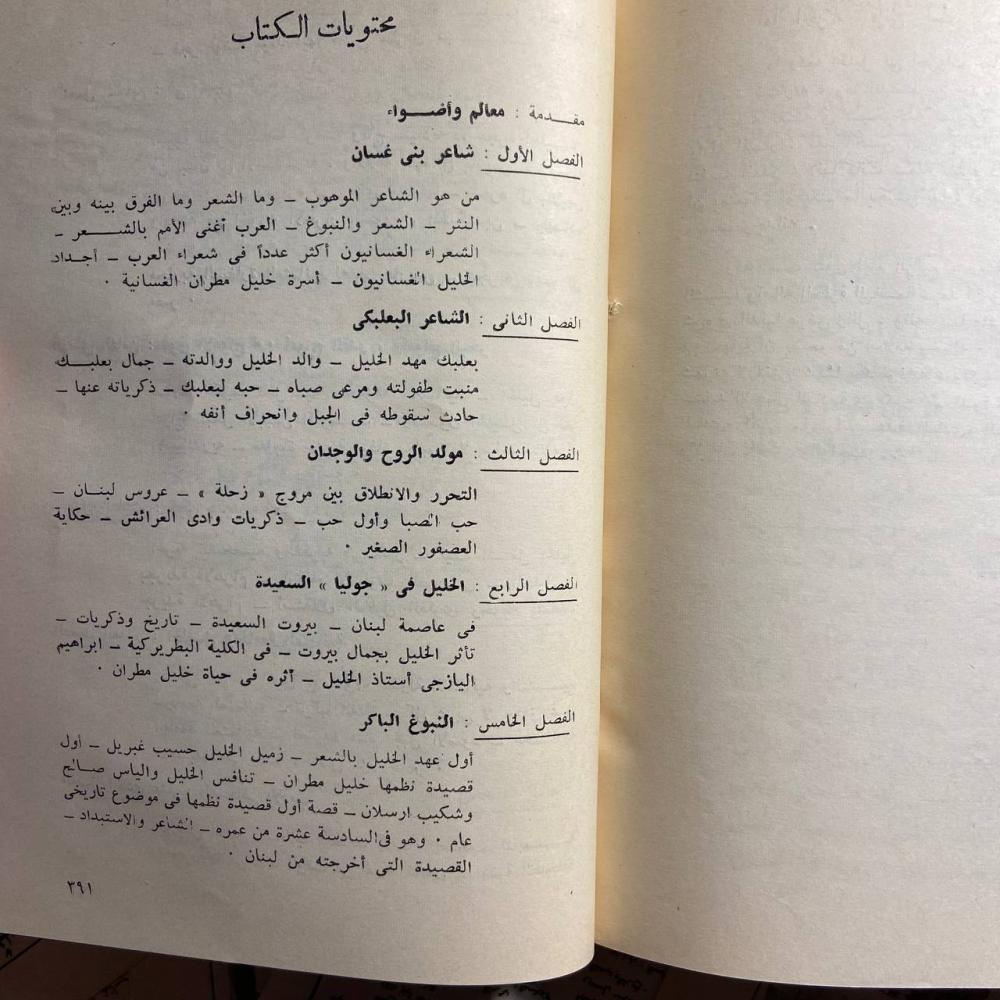 محتويات الكتاب
مقدمة : معالم وأضواء
الفصل الأول : شاعر بنى غسان
من هو الشاعر الموهوب – وما الشعر وما الفرق بينه وبين
النثر – الشعر والنبوغ – العرب أغنى الأمم بالشعر –
الشعراء الغسانيون أكثر عدداً فى شعراء العرب – أجداد
الخليل الغسانيون – أسرة خليل مطران الغسانية .
الفصل الثانى : الشاعر البعلبكى
بعلبك مهد الخليل – والد الخليل ووالدته – جمال بعلبك
منبت طفولته ومرعى صباه – حبه لبعلبك – ذكرياته عنها –
حادث سقوطه فى الجبل وانحراف أنفه .
الفصل الثالث : مولد الروح والوجدان
التحرر والانطلاق بين مروج « زحلة » – عروس لبنان –
حب الصبا وأول حب – ذكريات وادى العرائش – حكاية
العصفور الصغير .
الفصل الرابع : الخليل فى « جوليا » السعيدة
فى عاصمة لبنان – بيروت السعيدة – تاريخ وذكريات –
تأثر الخليل بجمال بيروت – فى الكلية البطريركية – ابراهيم
اليازجى أستاذ الخليل – أثره فى حياة خليل مطران .
الفصل الخامس : النبوغ الباكر
أول عهد الخليل بالشعر – زميل الخليل حسيب غبريل – أول
قصيدة نظمها خليل مطران – تنافس الخليل والياس صالح
وشكيب ارسلان – قصة أول قصيدة نظمها فى موضوع تاريخى
عام . وهو فى السادسة عشرة من عمره – الشاعر والاستبداد –
القصيدة التى أخرجته من لبنان .
٣٩١